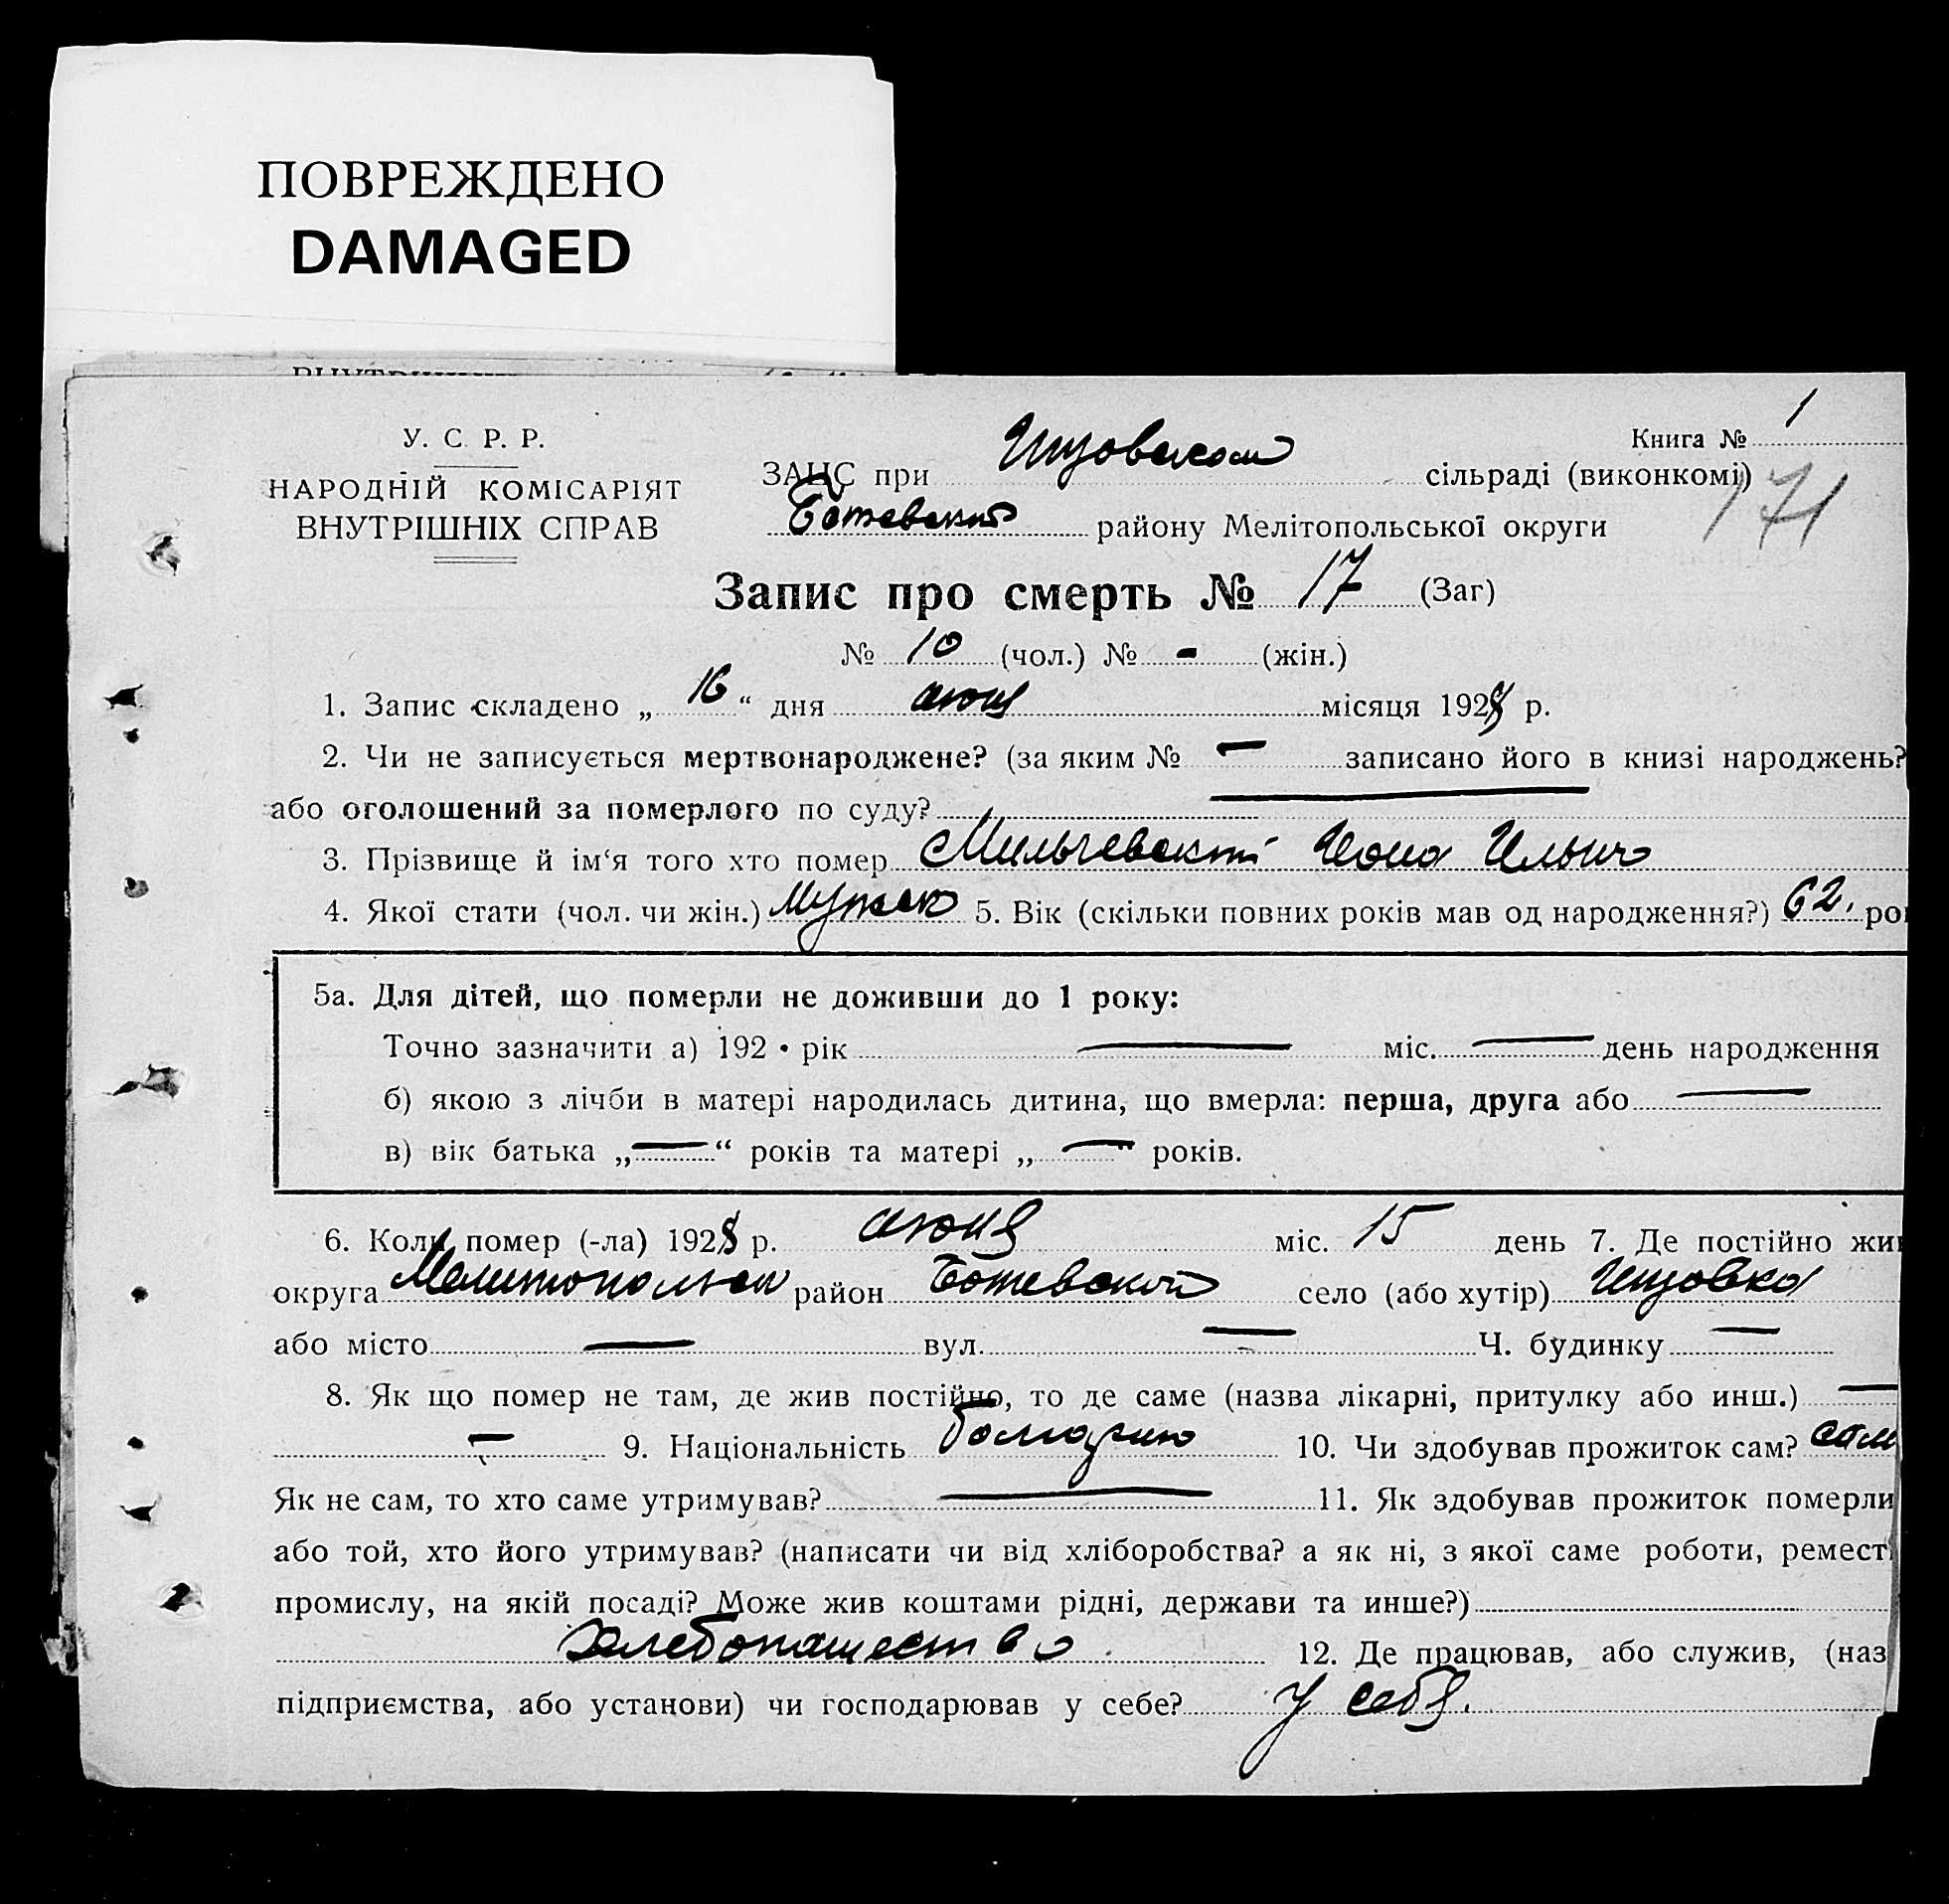 ПОВРЕЖДЕНО
DAMAGED
У. С. Р. Р.
НАРОДНІЙ КОМІСАРІЯТ
ВНУТРІШНІХ СПРАВ
Книга № 1
ЗАЦС при сільраді (виконкомі)
171
Ботевский району Мелітопольської округи
Запис про смерть № 17 (Заг)
№ 10 (чол.) № - (жін.)
1. Запис складено „ 16 “ дня июня місяця 1928 р.
2. Чи не записується мертвонароджене? (за яким № — записано його в книзі народжень?
або оголошений за померлого по суду? —
3. Прізвище й ім‘я того хто помер Мильчевский Иона Ильич
4. Якої стати (чол. чи жін.) Мужск 5. Вік (скільки повних років мав од народження?) 62. ро
5а. Для дітей, що померли не доживши до 1 року:
Точно зазначити а) 192 • рік — міс. — день народження
б) якою з лічби в матері народилась дитина, що вмерла: перша, друга або —
в) вік батька „ — “ років та матері „ — “ років.
6. Коли помер (-ла) 1928 р. июня міс. 15 день 7. Де постійно жи
округа Мелитопольск район Ботевский село (або хутір)
або місто — вул. — Ч. будинку —
8. Як що помер не там, де жив постійно, то де саме (назва лікарні, притулку або инш.) —
— 9. Національність болгарин 10. Чи здобував прожиток сам? сам
Як не сам, то хто саме утримував? — 11. Як здобував прожиток померли
або той, хто його утримував? (написати чи від хліборобства? а як ні, з якої саме роботи, ремест
промислу, на якій посаді? Може жив коштами рідні, держави та инше?)
хлебопашество 12. Де працював, або служив, (наз
підприємства, або установи) чи господарював у себе? у себя.